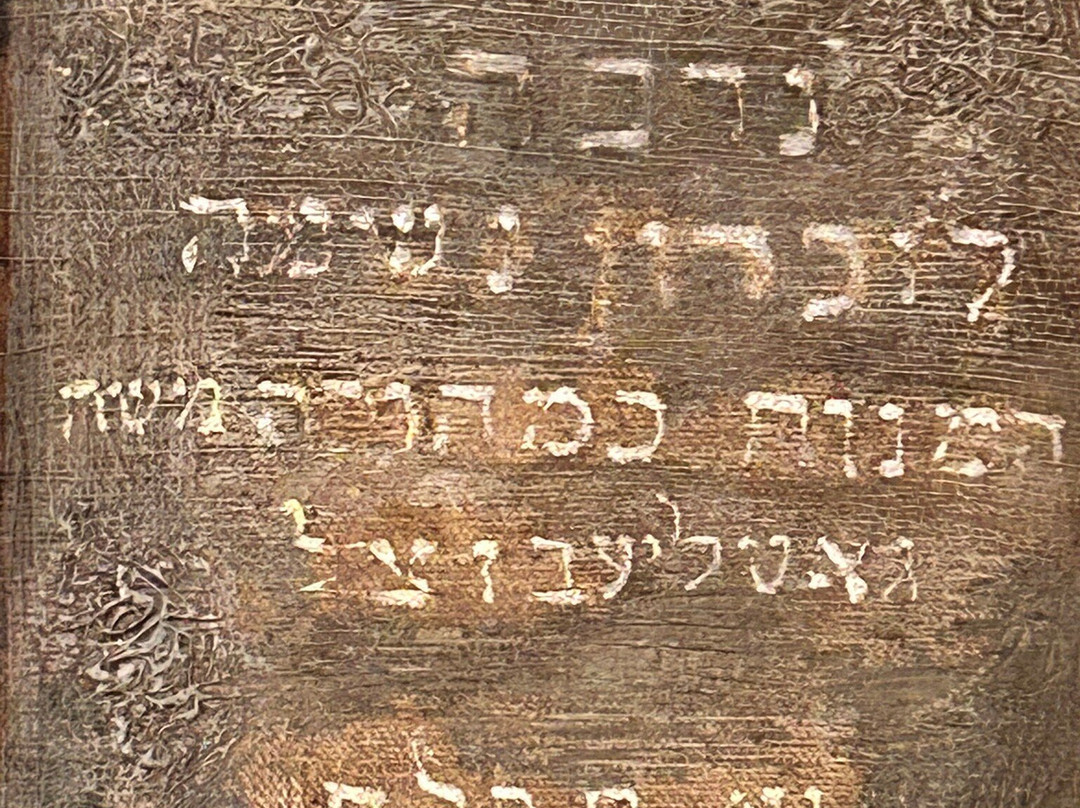 נדבה
לזכרון נשמת
המנוח כמהורר משה
גאטליעב זצל